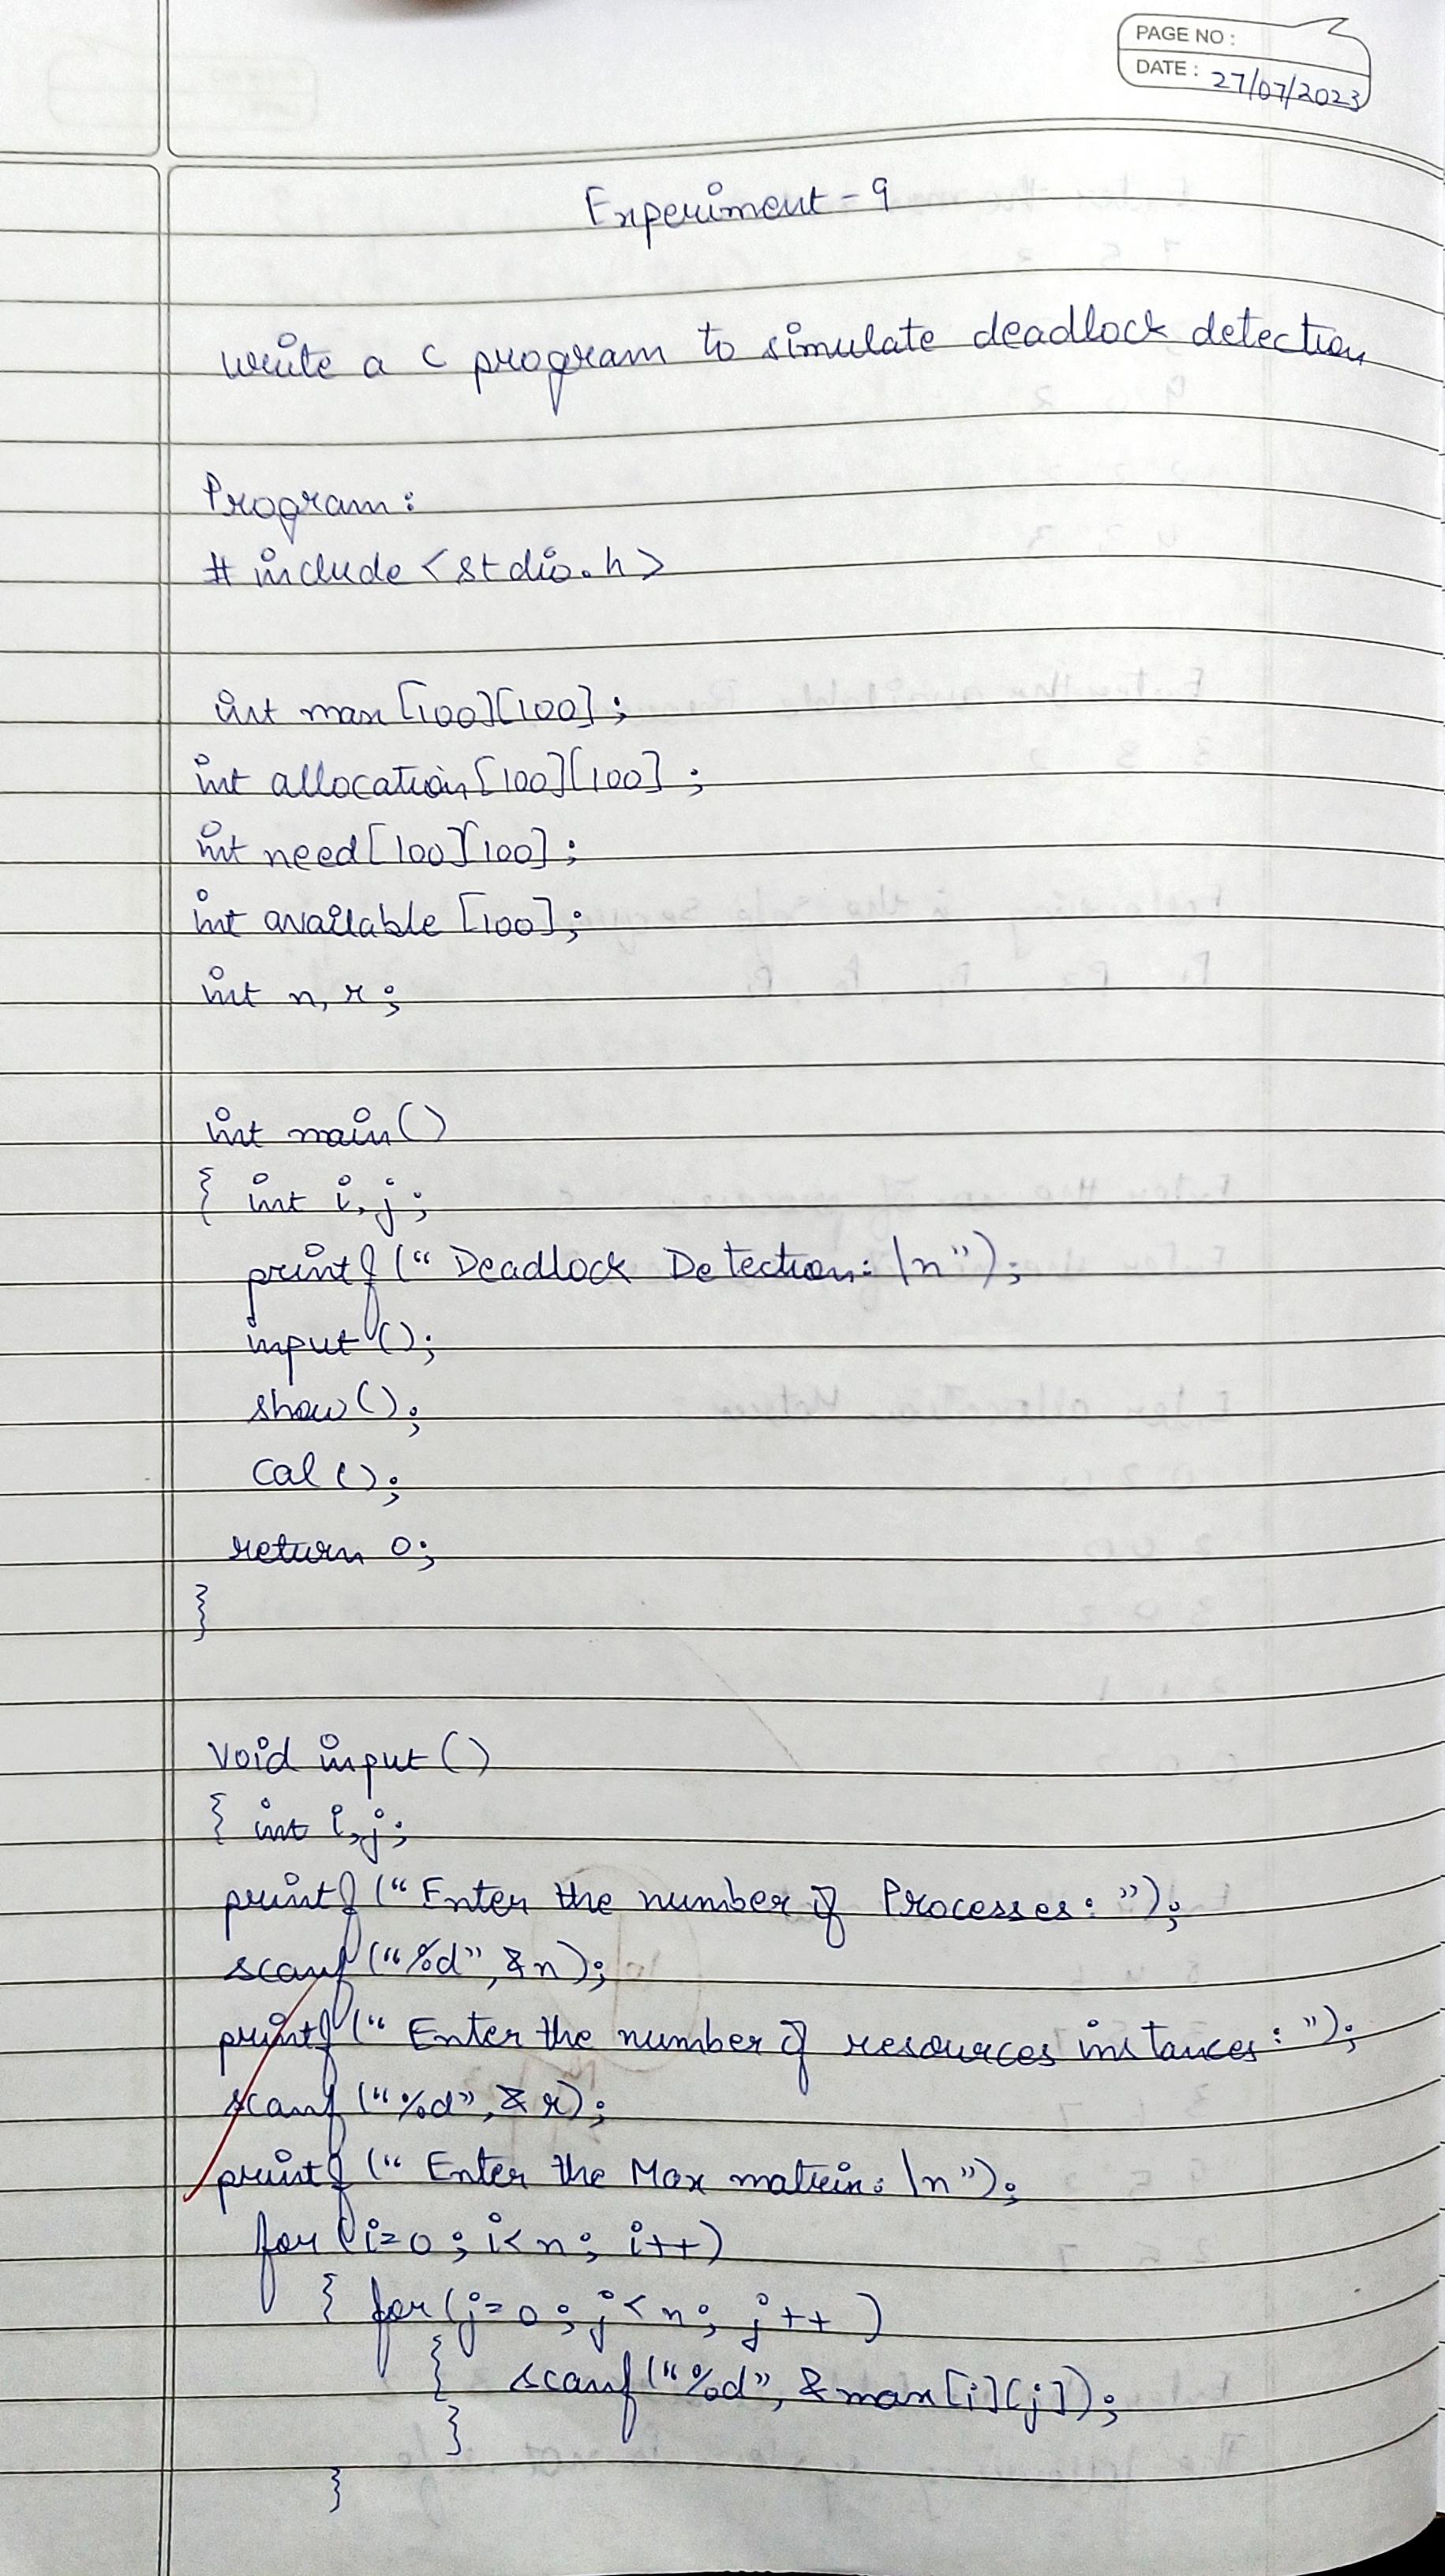 PAGE NO :
DATE : 27/07/2023
Experiment - 9
write a c program to simulate deadlock detection
Program:
# include <stdio.h>
int max [100][100];
int allocation[100][100];
int need[100][100];
int available [100];
int n, r;
int main()
{ int i, j;
printf (" Deadlock Detection: \n");
input ();
show ();
cal ();
return 0;
}
void input ()
{ int i, j;
printf (" Enter the number of Processes: ");
scanf ("%d", &n);
printf (" Enter the number of resources instances: ");
scanf ("%d", & r);
printf (" Enter the Max matrix: \n");
for (i=0; i<n; i++)
{ for (j=0; j<n; j++)
{ scanf ("%d", &max[i][j]);
}
}